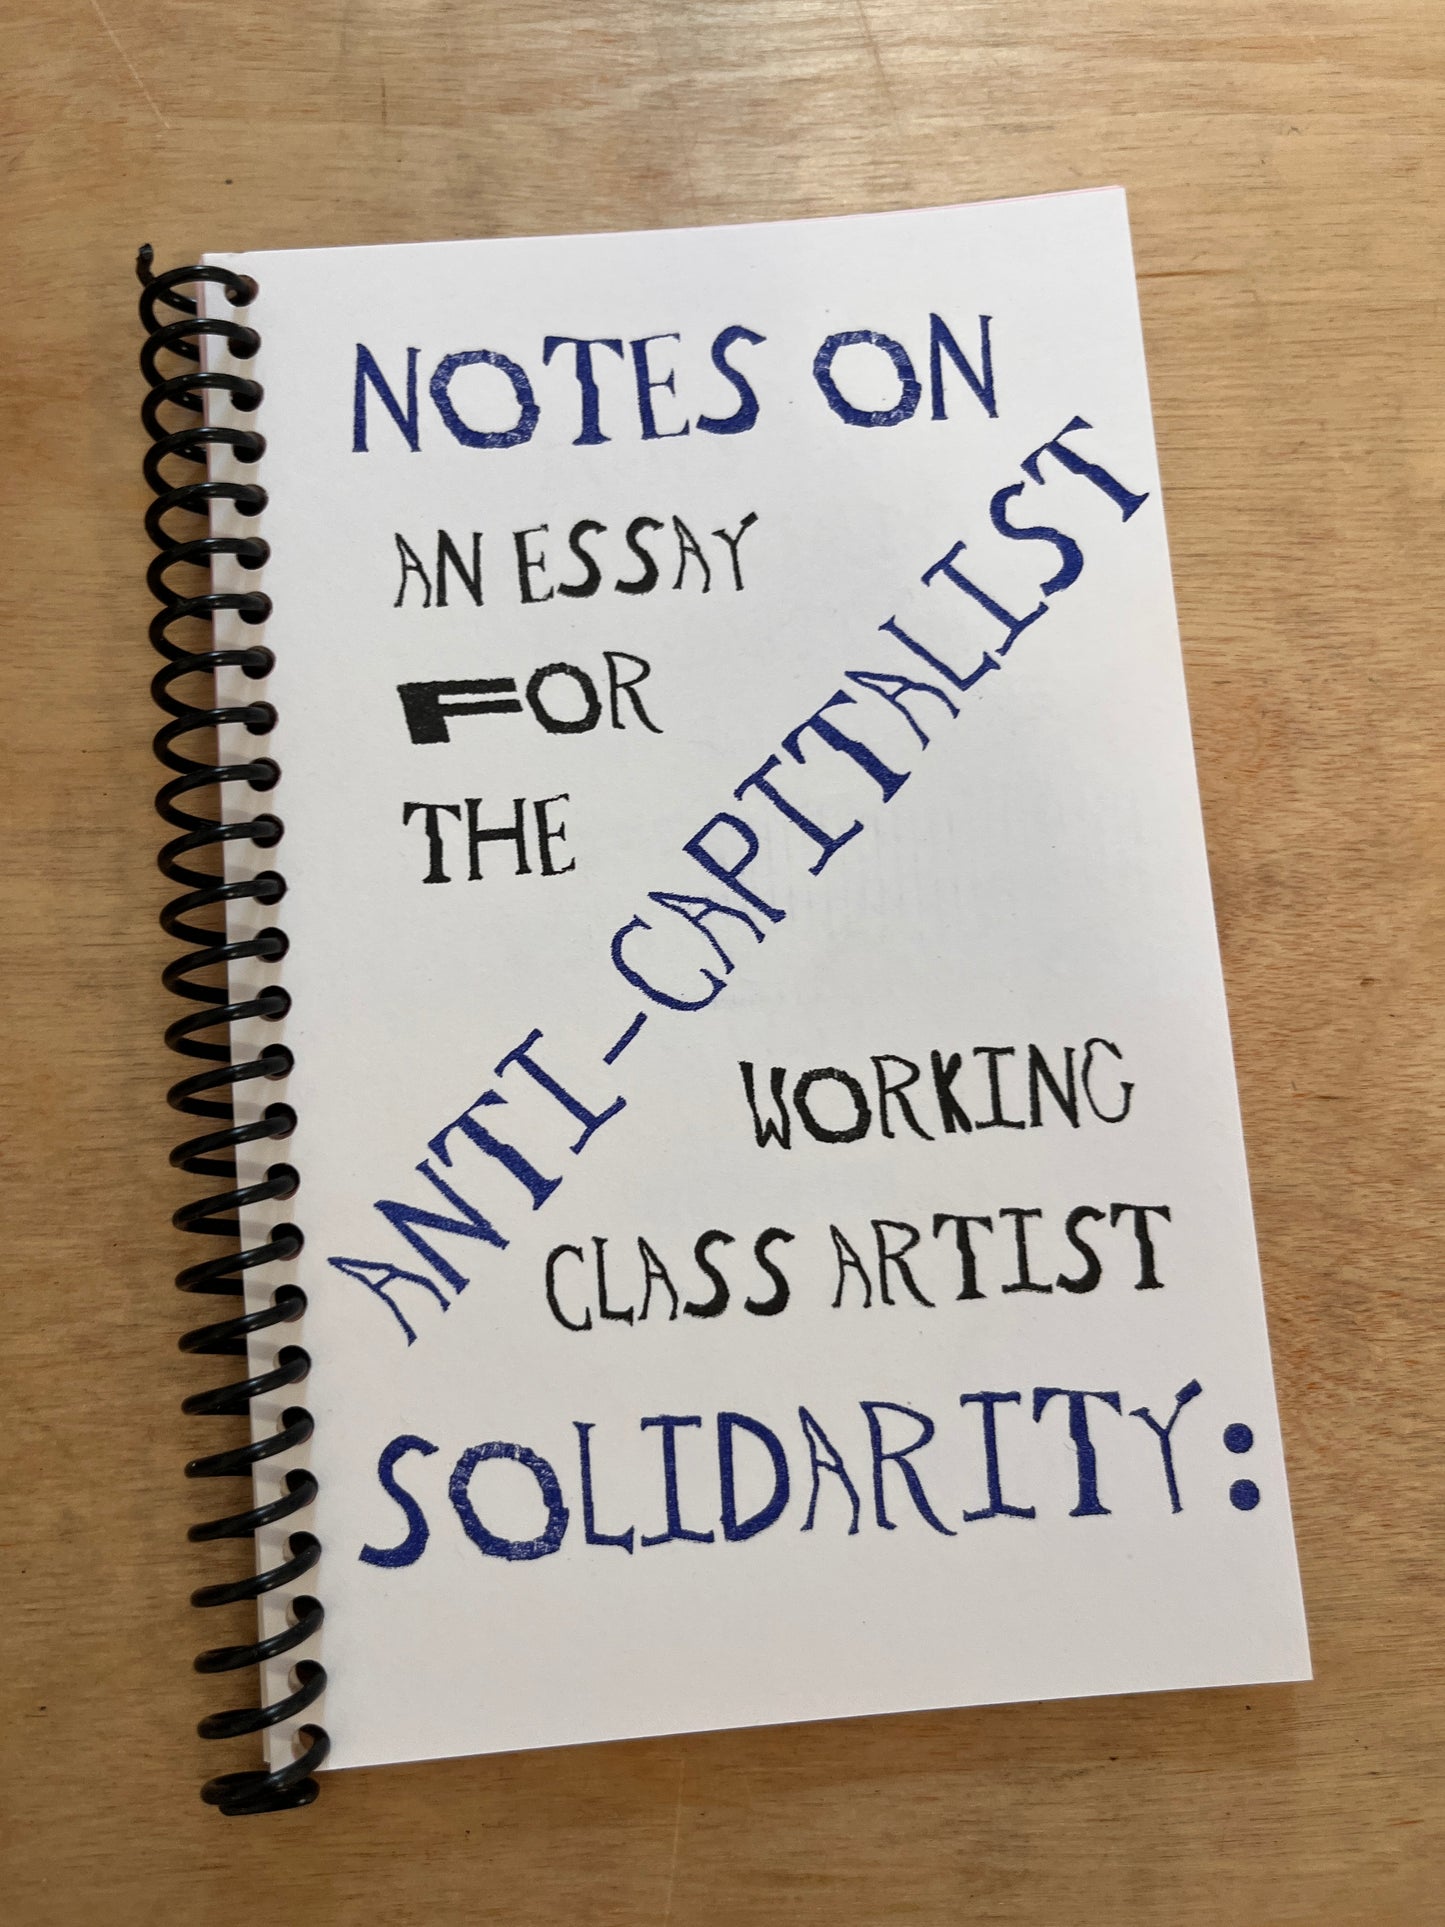 NOTES ON
AN ESSAY
FOR
THE
ANTI-CAPITALIST
WORKING
CLASS ARTIST
SOLIDARITY: